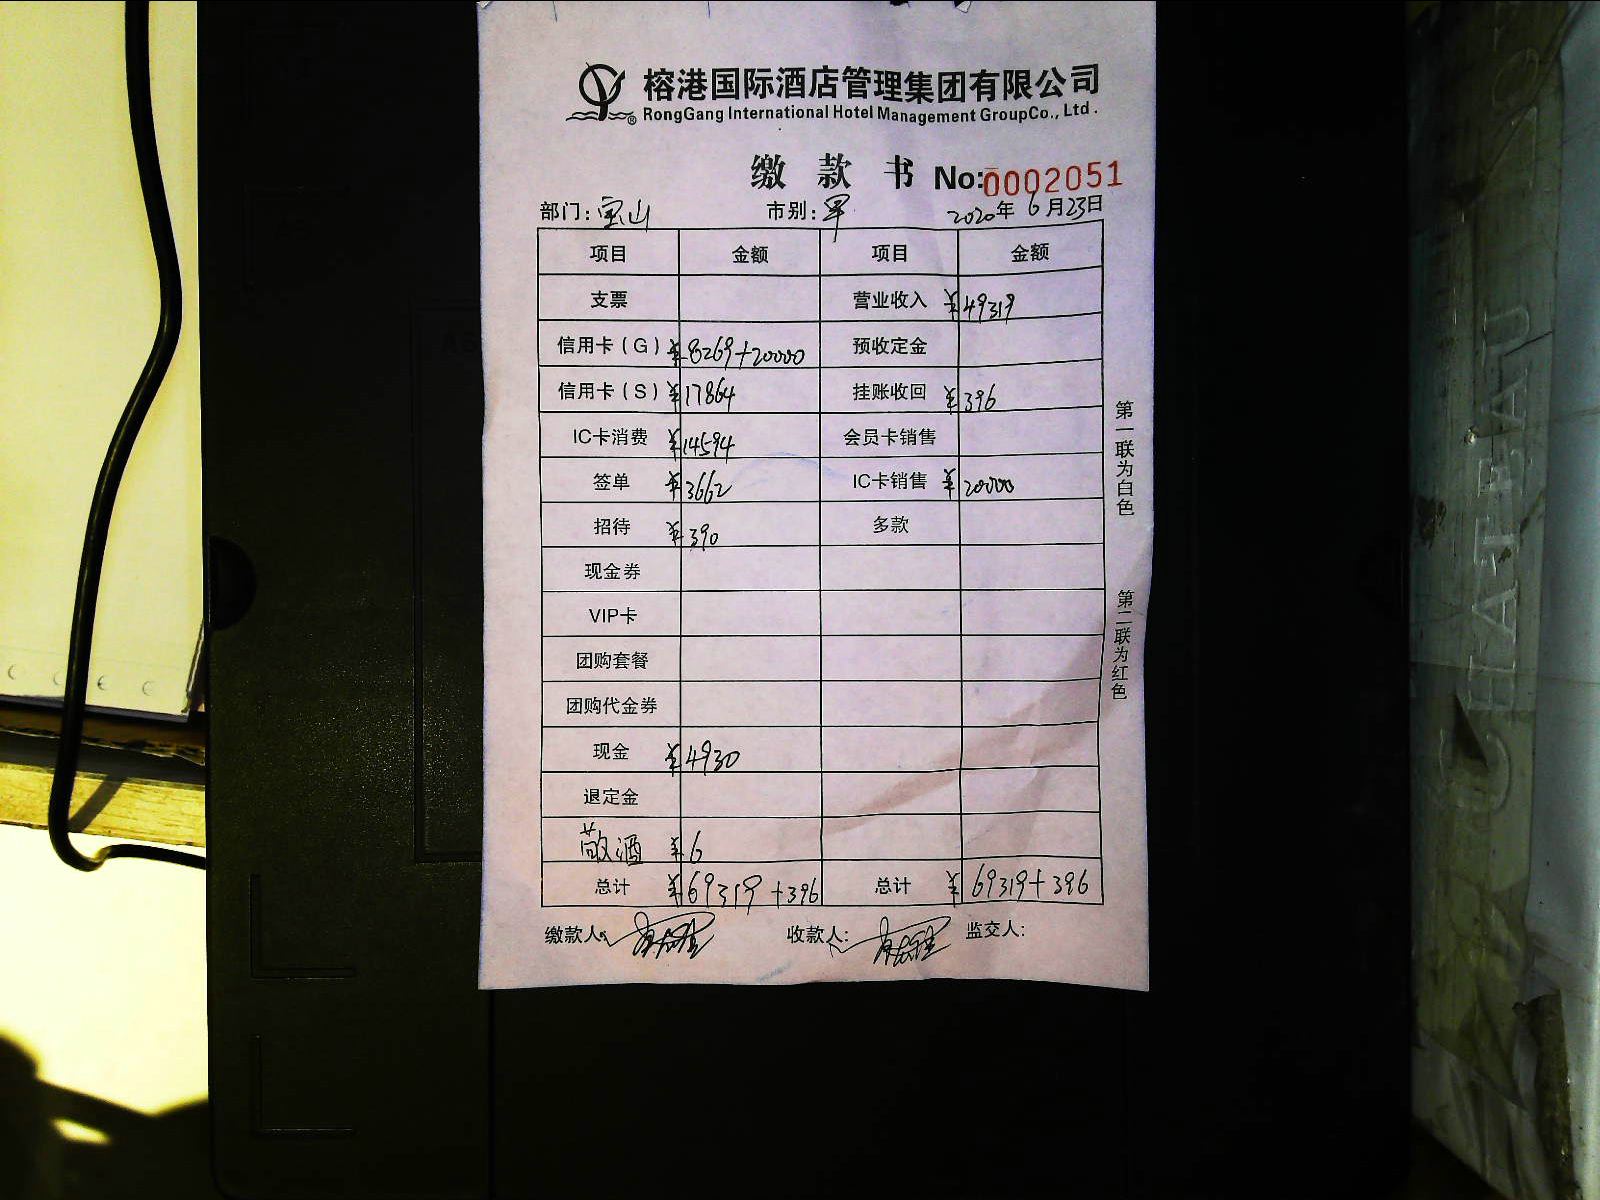 榕港国际酒店管理集团有限公司
® RongGang International Hotel Management GroupCo., Ltd .
缴 款 书 No:0002051
部门: 宝山 市别: 早 2020年 6月23日
项目 金额 项目 金额
支票 营业收入 ¥49319
信用卡(G) ¥8269+20000 预收定金
信用卡(S) ¥17864 挂账收回 ¥396
IC卡消费 ¥14594 会员卡销售
签单 ¥3662 IC卡销售 ¥20000
招待 ¥390 多款
现金券
VIP卡
团购套餐
团购代金券
现金 ¥4930
退定金
敬酒 ¥6
总计 ¥69319+396 总计 ¥69319+396
缴款人: 收款人: 监交人:
第一联为白色
第二联为红色